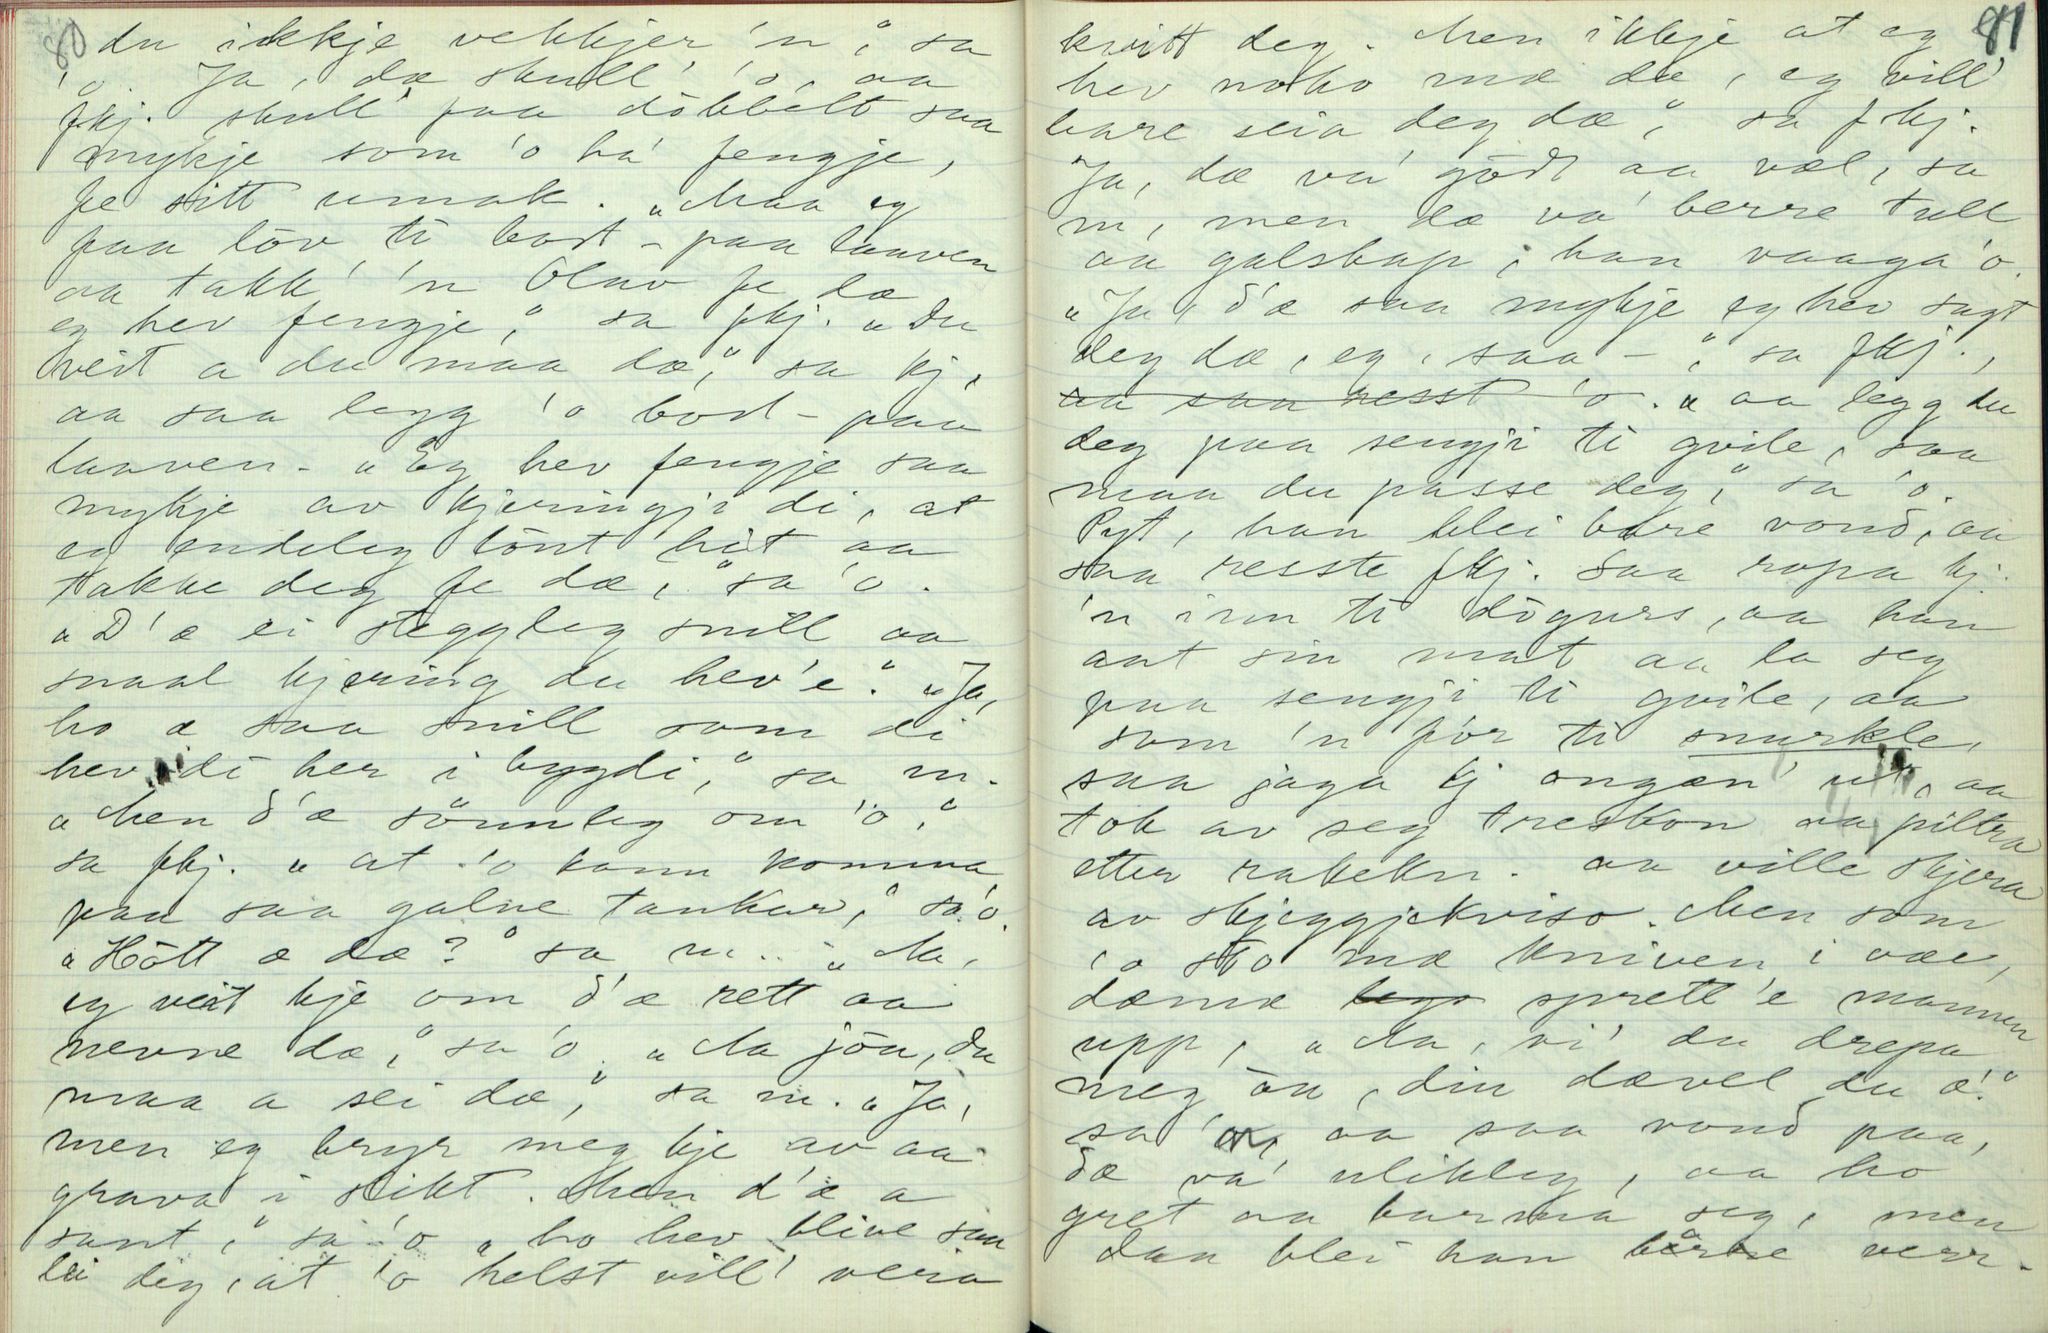 80
du ikkje vekkjer 'n," sa
'o. Ja, dæ skull' 'o, aa
fkj. skull' faa döbbelt saa
mykje som 'o ha' fengje,
fe sitt umak. „Maa eg
faa löv ti bort-paa laaven
aa takk' 'n Olav fe dæ
eg hev fengje," sa fkj. „Du
veit a du maa dæ," sa kj,
aa saa legg 'o bort-paa
laaven. „Eg hev fengje saa
mykje av kjeringji di, at
eg endeleg lönt hit aa
takke deg fe dæ," sa 'o.
„D'æ ei steggleg snill aa
snaal kjering du hev'e." „Ja,
ho æ saa snill som di
hev di her i bygdi," sa m.
„Men d'æ sönnleg om 'o,"
sa fkj. „at 'o kann komma
paa saa galne tankar," sa'o.
„Hött æ dæ?" sa m.. „Ne,
eg veit kje om d'æ rett aa
nevne dæ," sa 'o. „Aa jön, du
maa a sei dæ," sa m. „Ja,
men eg bryr meg kje av aa
grava i slikt. Men d'æ a
sant," sa 'o „ho hev blive saa
lei deg, at 'o helst vill' vera
81
kvitt deg. Men ikkje at eg
hev noko mæ dæ, eg vill'
bare seia deg dæ," sa fkj.
Ja, dæ va' gödt aa væl, sa
m, men dæ va' berre tull
aa galskap, han vaaga 'o.
„Ja, d'æ saa mykje eg hev sagt
deg dæ, eg, saa –", sa fkj.,
aa saa resst 'o. „aa legg du
deg paa sengji ti qvile, saa
maa du passe deg," sa 'o.
Pyt, han blei bare vond, aa
saa resste fkj. Saa ropa kj.
'n inn ti dögurs, aa han
aat sin mat aa la seg
paa sengji ti qvile, aa
som 'n fór ti snurkle,
saa jaga kj ongan' ut, aa
tok av seg treskon aa piltra
etter rakekn. aa ville skjera
av skjeggjekviso. Men som
'o sto mæ kniven i væe,
dæmæ sprett'e mannen
upp, „Aa, vi' du drepa
meg òn, din dævel du æ!"
sa 'n, aa saa vond paa,
dæ va' ulikleg, aa ho
gret aa barma seg, men
daa blei han bære verr.